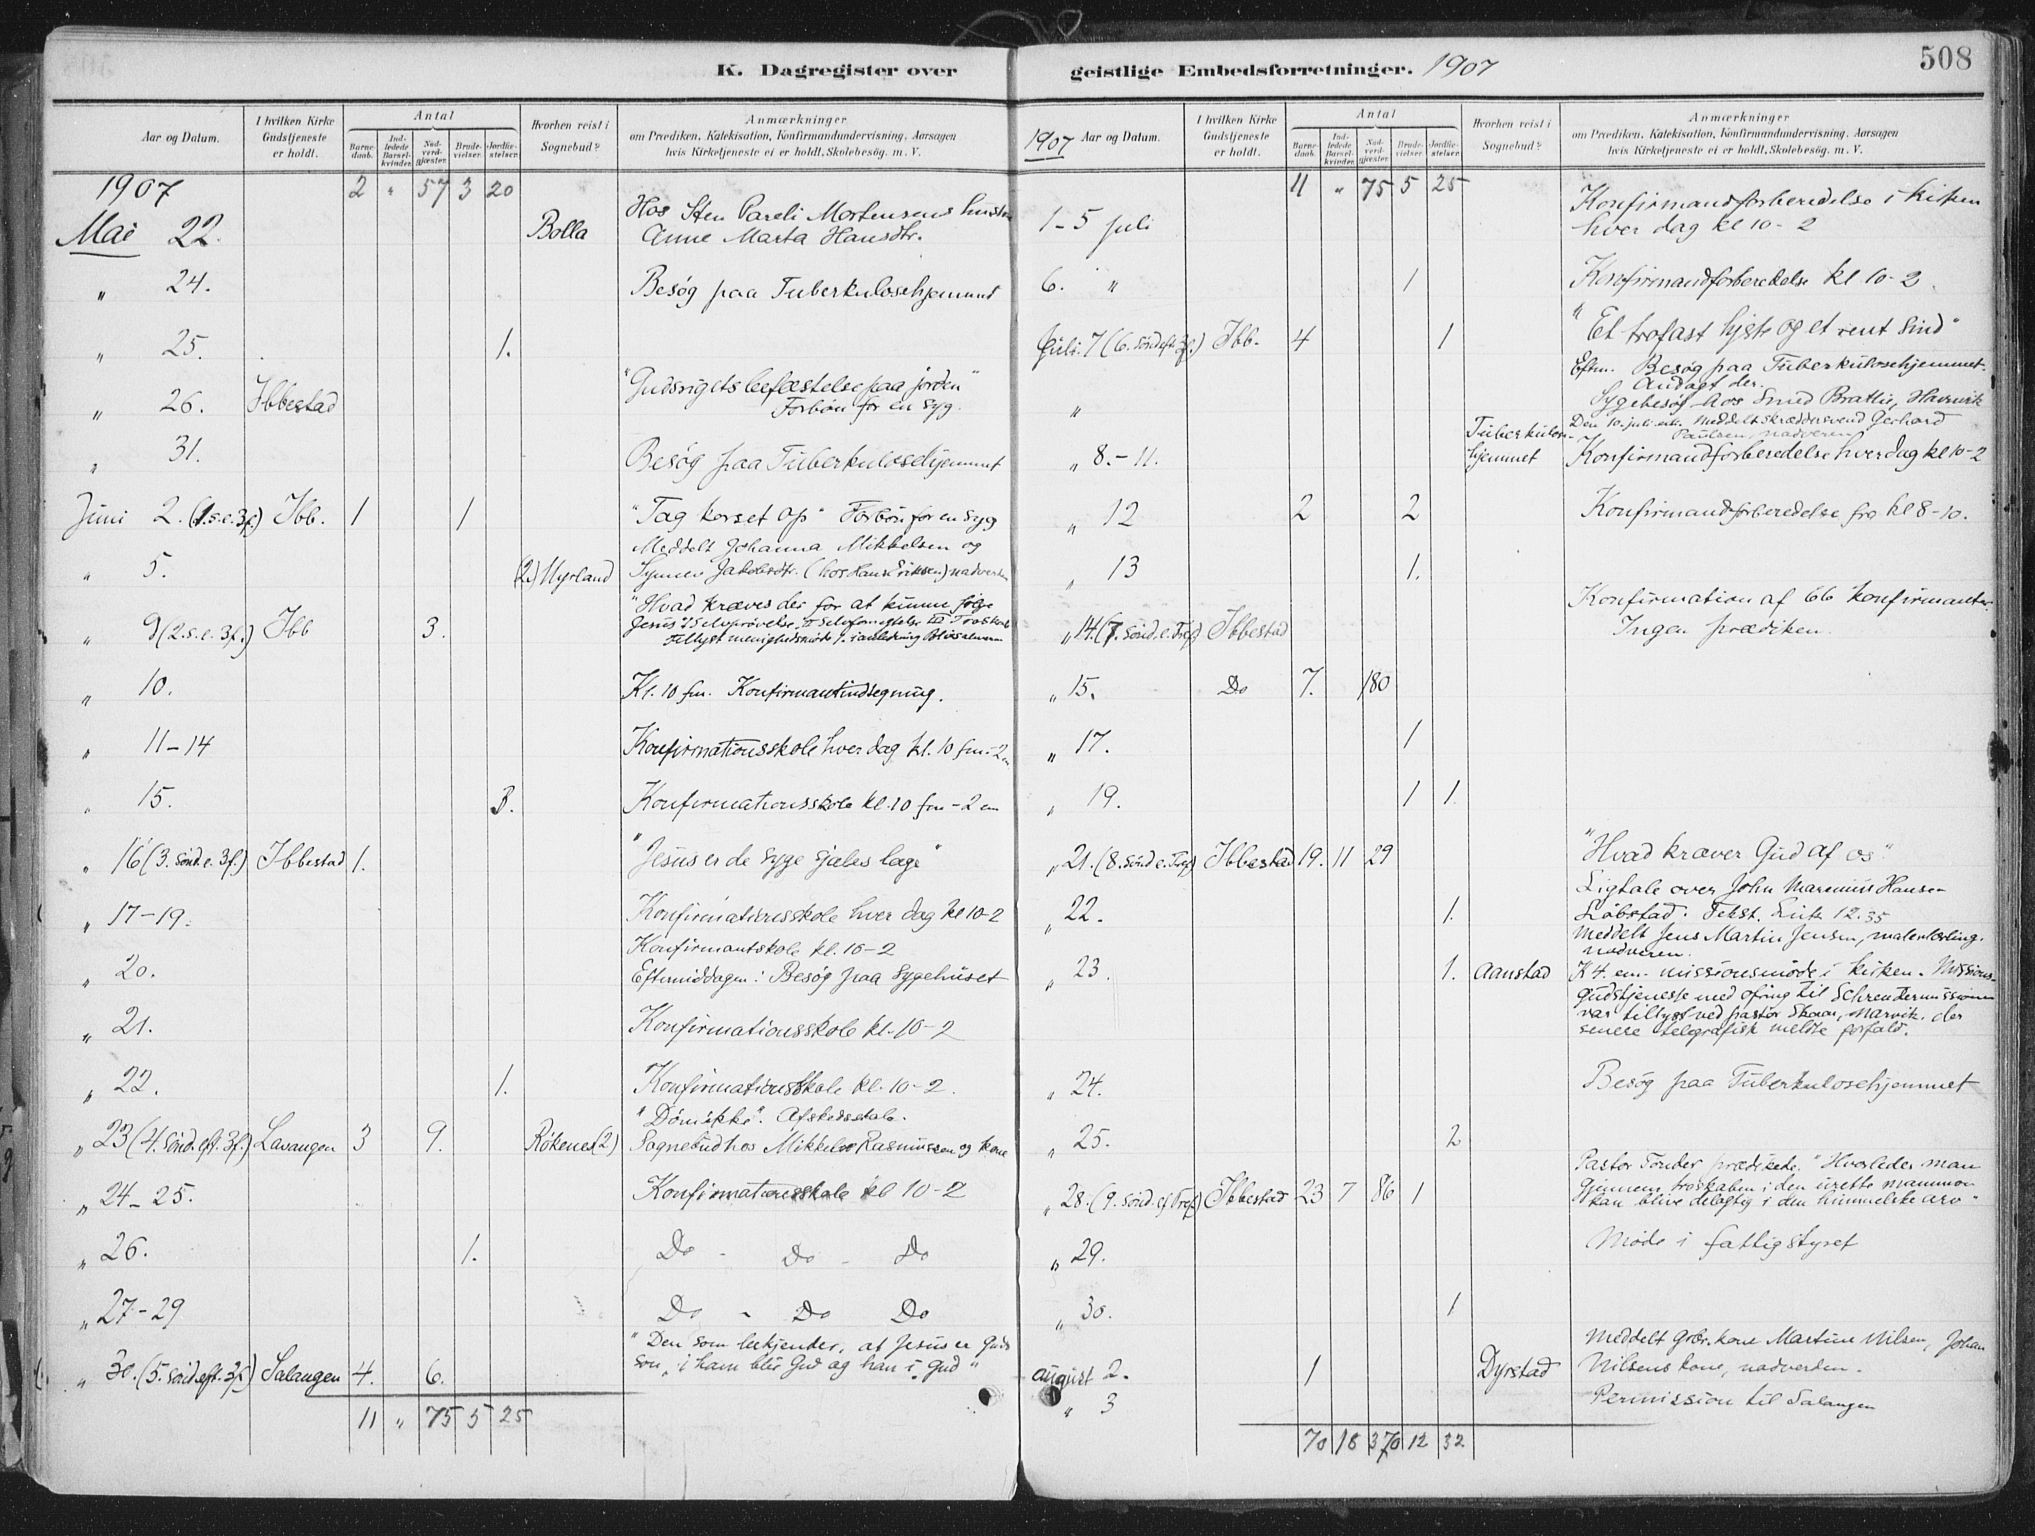 K. Dagregister over
Aar og Datum.
I hvilken Kirke Gudstjeneste er holdt.
Antal
Barnedaab.
Indledede Barselkvinder.
Nadverdgjæster.
Brudevielser.
Jordfæstelser.
Hvorhen reist i Sognebud?
Anmærkninger
om Prædiken, Katekisation, Konfirmandundervisning, Aarsagen
hvis Kirketjeneste ei er holdt, Skolebesøg. m. V.
1907 2 " 57 3 20
Mai 22. Bolla Hos Sten Pareli Mortensens hustru
Anne Marta Hansdtr.
" 24. Besøg paa Tuberkulosehjemmet
" 25. 1.
" 26. Ibbestad "Gudsrigets befæstelse paa jorden"
Forbøn for en syg.
" 31. Besøg paa Tuberkulosehjemmet
Juni 2. (1. s. e. 3f.) Ibb. 1 1 "Tag korset op" Forbøn for en syg
" 5. (2) Myrland Meddelt Johanna Mikkelsen og
Jakobsdtr. (hos Hans Eriksen) nadverden
" 9 (2. s. e. 3f.) Ibb 3. "Hvad kræves der for at kunne følge
Jesus
" 10. Kl. 10 fm. Konfirmantindtegning.
" 11-14 Konfirmationsskole hver dag kl. 10 fm.-2 em
" 15. 3. Konfirmationsskole kl. 10 fm-2 em
" 16 (3. sønd. e. 3f.) Ibbestad 1. "Jesus er de syge sjæles læge"
" 17-19. Konfirmationsskole hver dag kl 10-2
" 20. Konfirmantskole kl. 10-2
Eftermiddagen: Besøg paa sygehuset
" 21. Konfirmationsskole kl. 10-2
" 22. 1. Konfirmationsskole kl. 10-2.
" 23 (4. sønd. eft. 3f.) Lavangen 3 9. Røkenes (2) "Døm ikke". Afskedstale.
Sognebud hos Mikkel Rasmussen og kone
" 24-25. Konfirmationsskole kl 10-2
" 26. 1. Do - Do - Do
" 27-29 Do - Do Do
" 30. (5. sønd. eft. 3f.) Salangen 4. 6. "Den som bekjender, at Jesus er Guds
søn, i ham blir Gud og han i Gud"
11 " 75 5 25
geistlige Embedsforretninger. 1907
508
1907 Aar og Datum.
I hvilken Kirke Gudstjeneste er holdt.
Antal
Barnedaab.
Indledede Barselkvinder.
Nadverdgjæster.
Brudevielser.
Jordfæstelser.
Hvorhen reist i Sognebud?
Anmærkninger
om Prædiken, Katekisation, Konfirmandundervisning, Aarsagen
hvis Kirketjeneste ei er holdt, Skolebesøg. m. V.
11 " 75 5 25
1-5 juli Konfirmandforberedelse i kirken
hver dag kl 10-2
6. " 1 Konfirmandforberedelse kl 10-2.
Juli 7 (6. sønd. eft. 3f.) Ibb. 4 1 "Et trofast hjerte og et rent sind"
" Eftm. Besøg paa Tuberkulosehjemmet.
Andagt der.
Sygebesøg hos Smed Bratli, Havnvik
Den 10. juli meddelt skræddersvend Gerhard
Paulsen nadveren
" 8.-11. Tuberkulosehjemmet Konfirmandforberedelse hver dag kl 10-2
" 12 2 2 Konfirmandforberedelse fra kl 8-10.
" 13 1.
" 14. (7. sønd. e. Tref) Ibbestad Konfirmation af 66 konfirmanter
Ingen prædiken.
" 15. Do 7. 180
" 17. 1
" 19. 1 1.
" 21. (8. sønd e. Tref) Ibbestad 19. 11 29 "Hvad kræver Gud af os".
" 22. 1. Ligtale over John Marenius Hansen
Løbstad. Tekst. Luk 12.35
" 23. 1. Aanstad Meddelt Jens Martin Jensen, malerlærling,
nadveren.
K 4. em. missionsmøde i kirken. Missionsgudstjeneste
med ofring til Schreudermissionen
var tillyst ved pastor Skaar, Narvik, der
senere telegrafisk meldte forfald.
" 24. Besøg paa Tuberkulosehjemmet
" 25. 2
" 28. (9. sønd. ef Tref.) Ibbestad 23 7 86 1 Pastor Tønder prædikede. "Hvorledes man
gjennem troskaben i den urette mammon
kan blive delagtig i den himmelske arv"
" 29. Møde i fattigstyret
" 30. 1
august 2. 1 Dyrstad Meddelt gbr. kone Martine Nilsen, Johan
Nilsens kone, nadverden.
" 3 Permission til Salangen
70 18 370 12 32